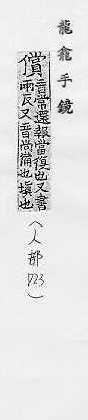 龍龕手鏡
償
音常還報當復也又書
兩反又音尚備也塡也
（人部 P23）